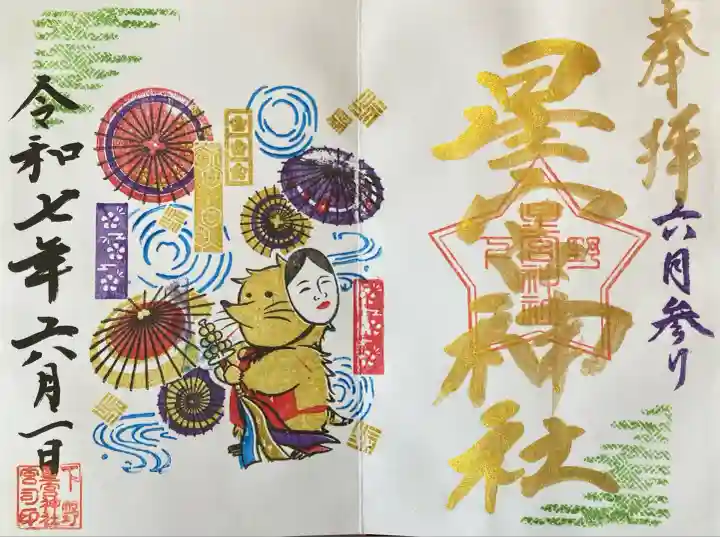 奉拝
六月参り
星宮神社
下野
星宮神社
令和七年六月一日
下野
星宮神社
宮司印